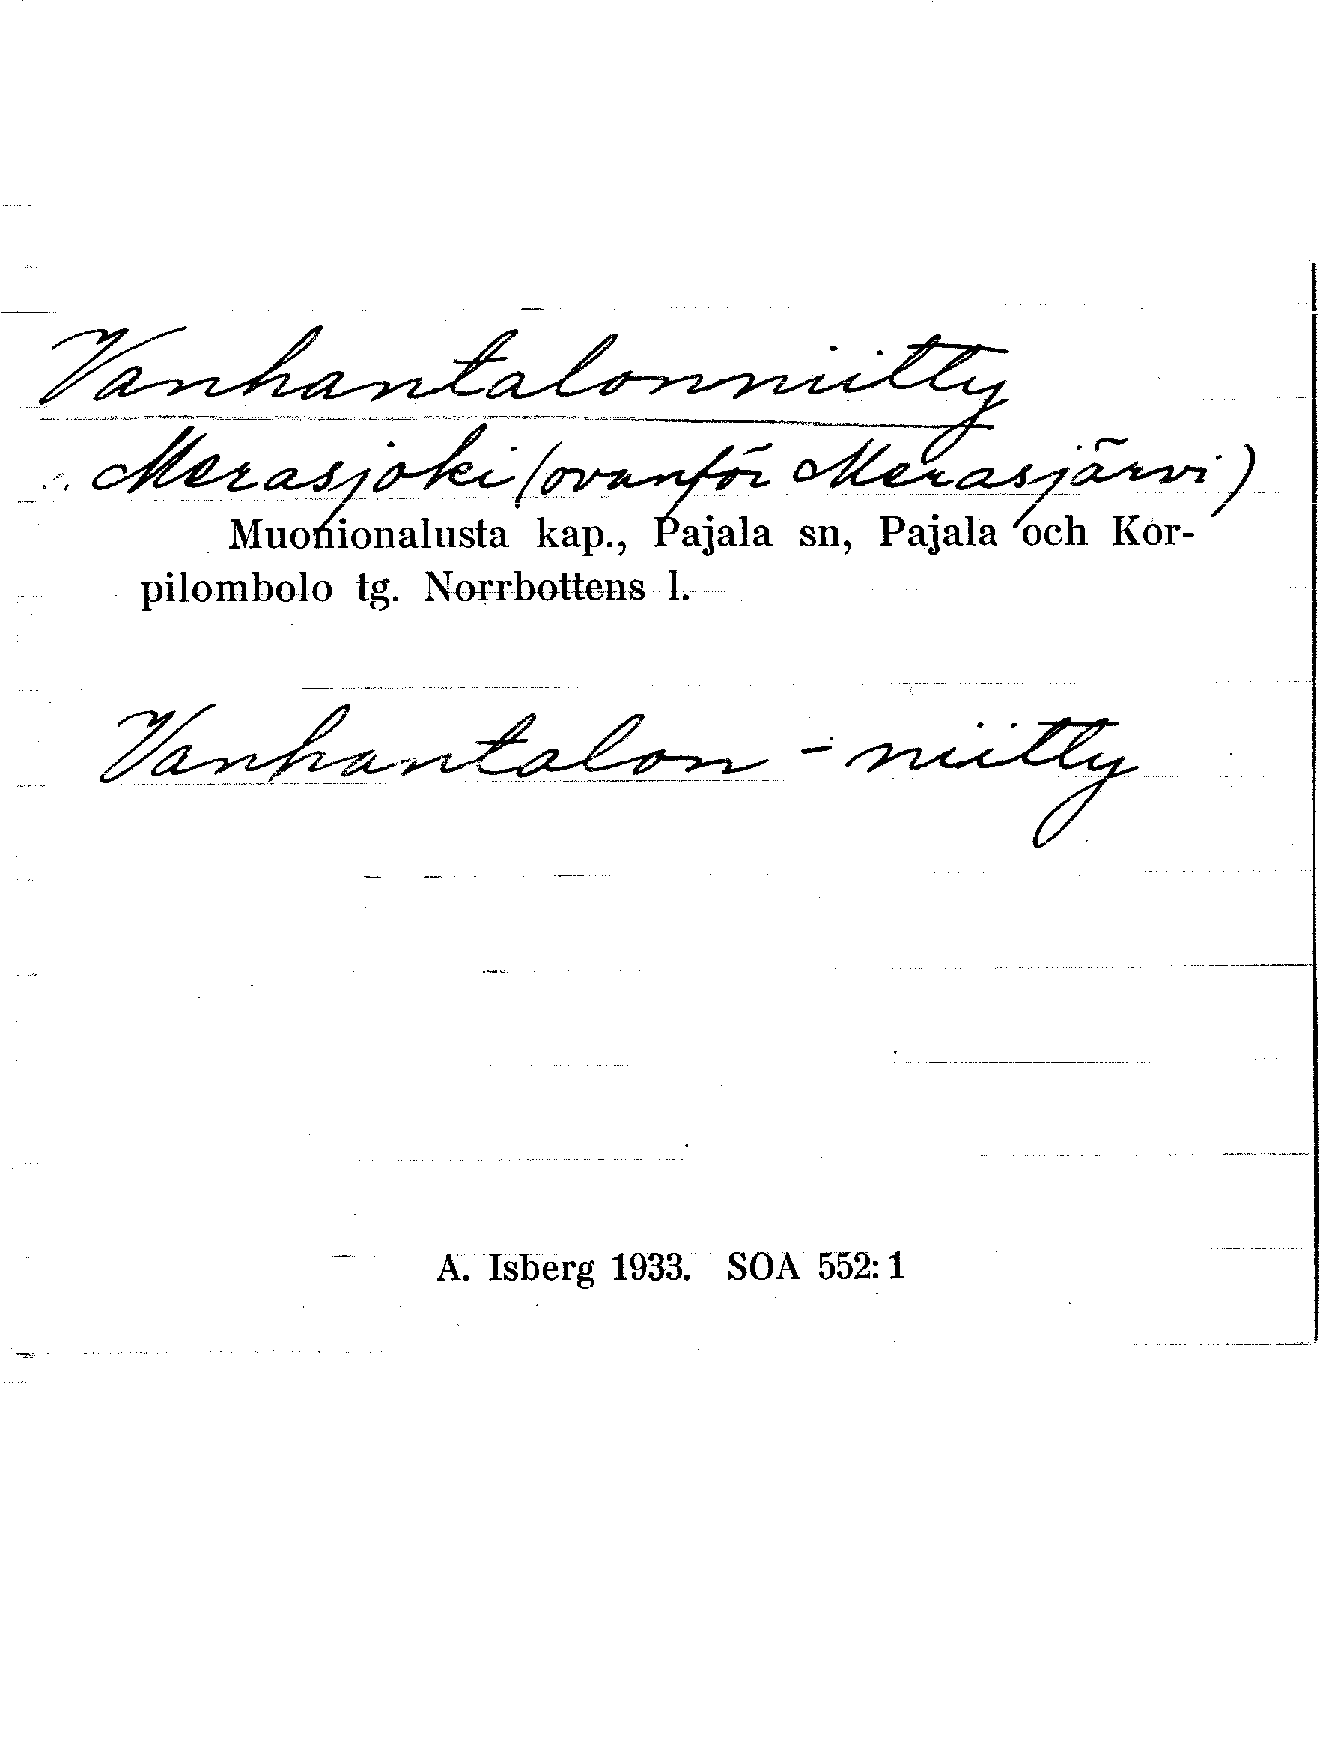 Vanhantalonniitty
Merasjoki (ovanför Merasjärvi)
Muonionalusta kap., Pajala sn, Pajala och Kor-
pilombolo tg. Norrbottens l.
Vanhantalon - niitty
A. Isberg 1933. SOA 552:1